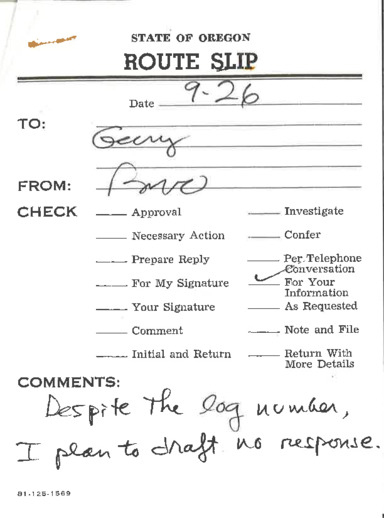 STATE OF OREGON
ROUTE SLIP
Date 9-26
TO:
Gerry
FROM:
CHECK
Approval Investigate
Necessary Action Confer
Prepare Reply Per Telephone Conversation
For My Signature ✓ For Your Information
Your Signature As Requested
Comment Note and File
Initial and Return Return With More Details
COMMENTS:
Despite the log number,
I plan to draft no response.
81-125-1569